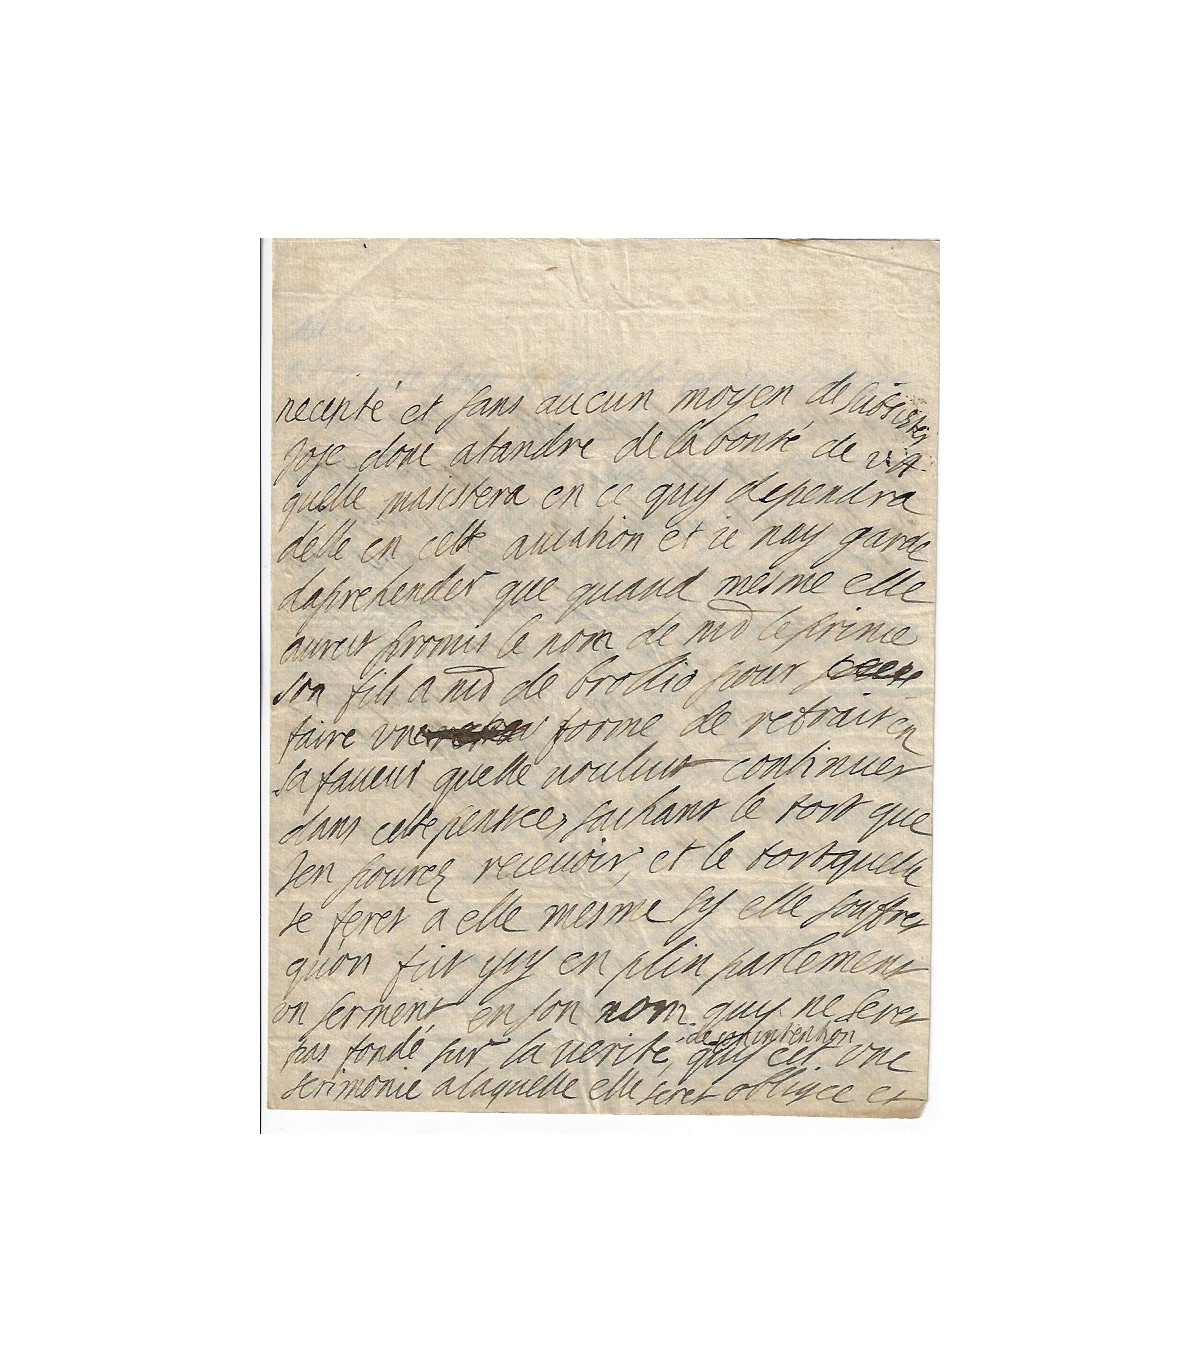 necesité et sans aucun moyen de subsister
Jose donc atandre de la bonté de v.A.
quelle masistera en ce quy dependra
delle en cette aucation et ie nay garde
daprehender que quand mesme elle
auret promis le nom de mr le prince
son fils a mr de broglio pour
faire vne forme de retrait en
sa faueur quelle voulut continuer
dans cette pensee, sachant le tort que
Jen pourez receuoir, et le tort quelle
se feret a elle mesme sy elle soufret
quon fit ysy en plin parlement
vn serment en son nom quy ne seret
pas fondé sur la verité de son intention, quy est vne
serimonie a laquelle elle seret obligee et